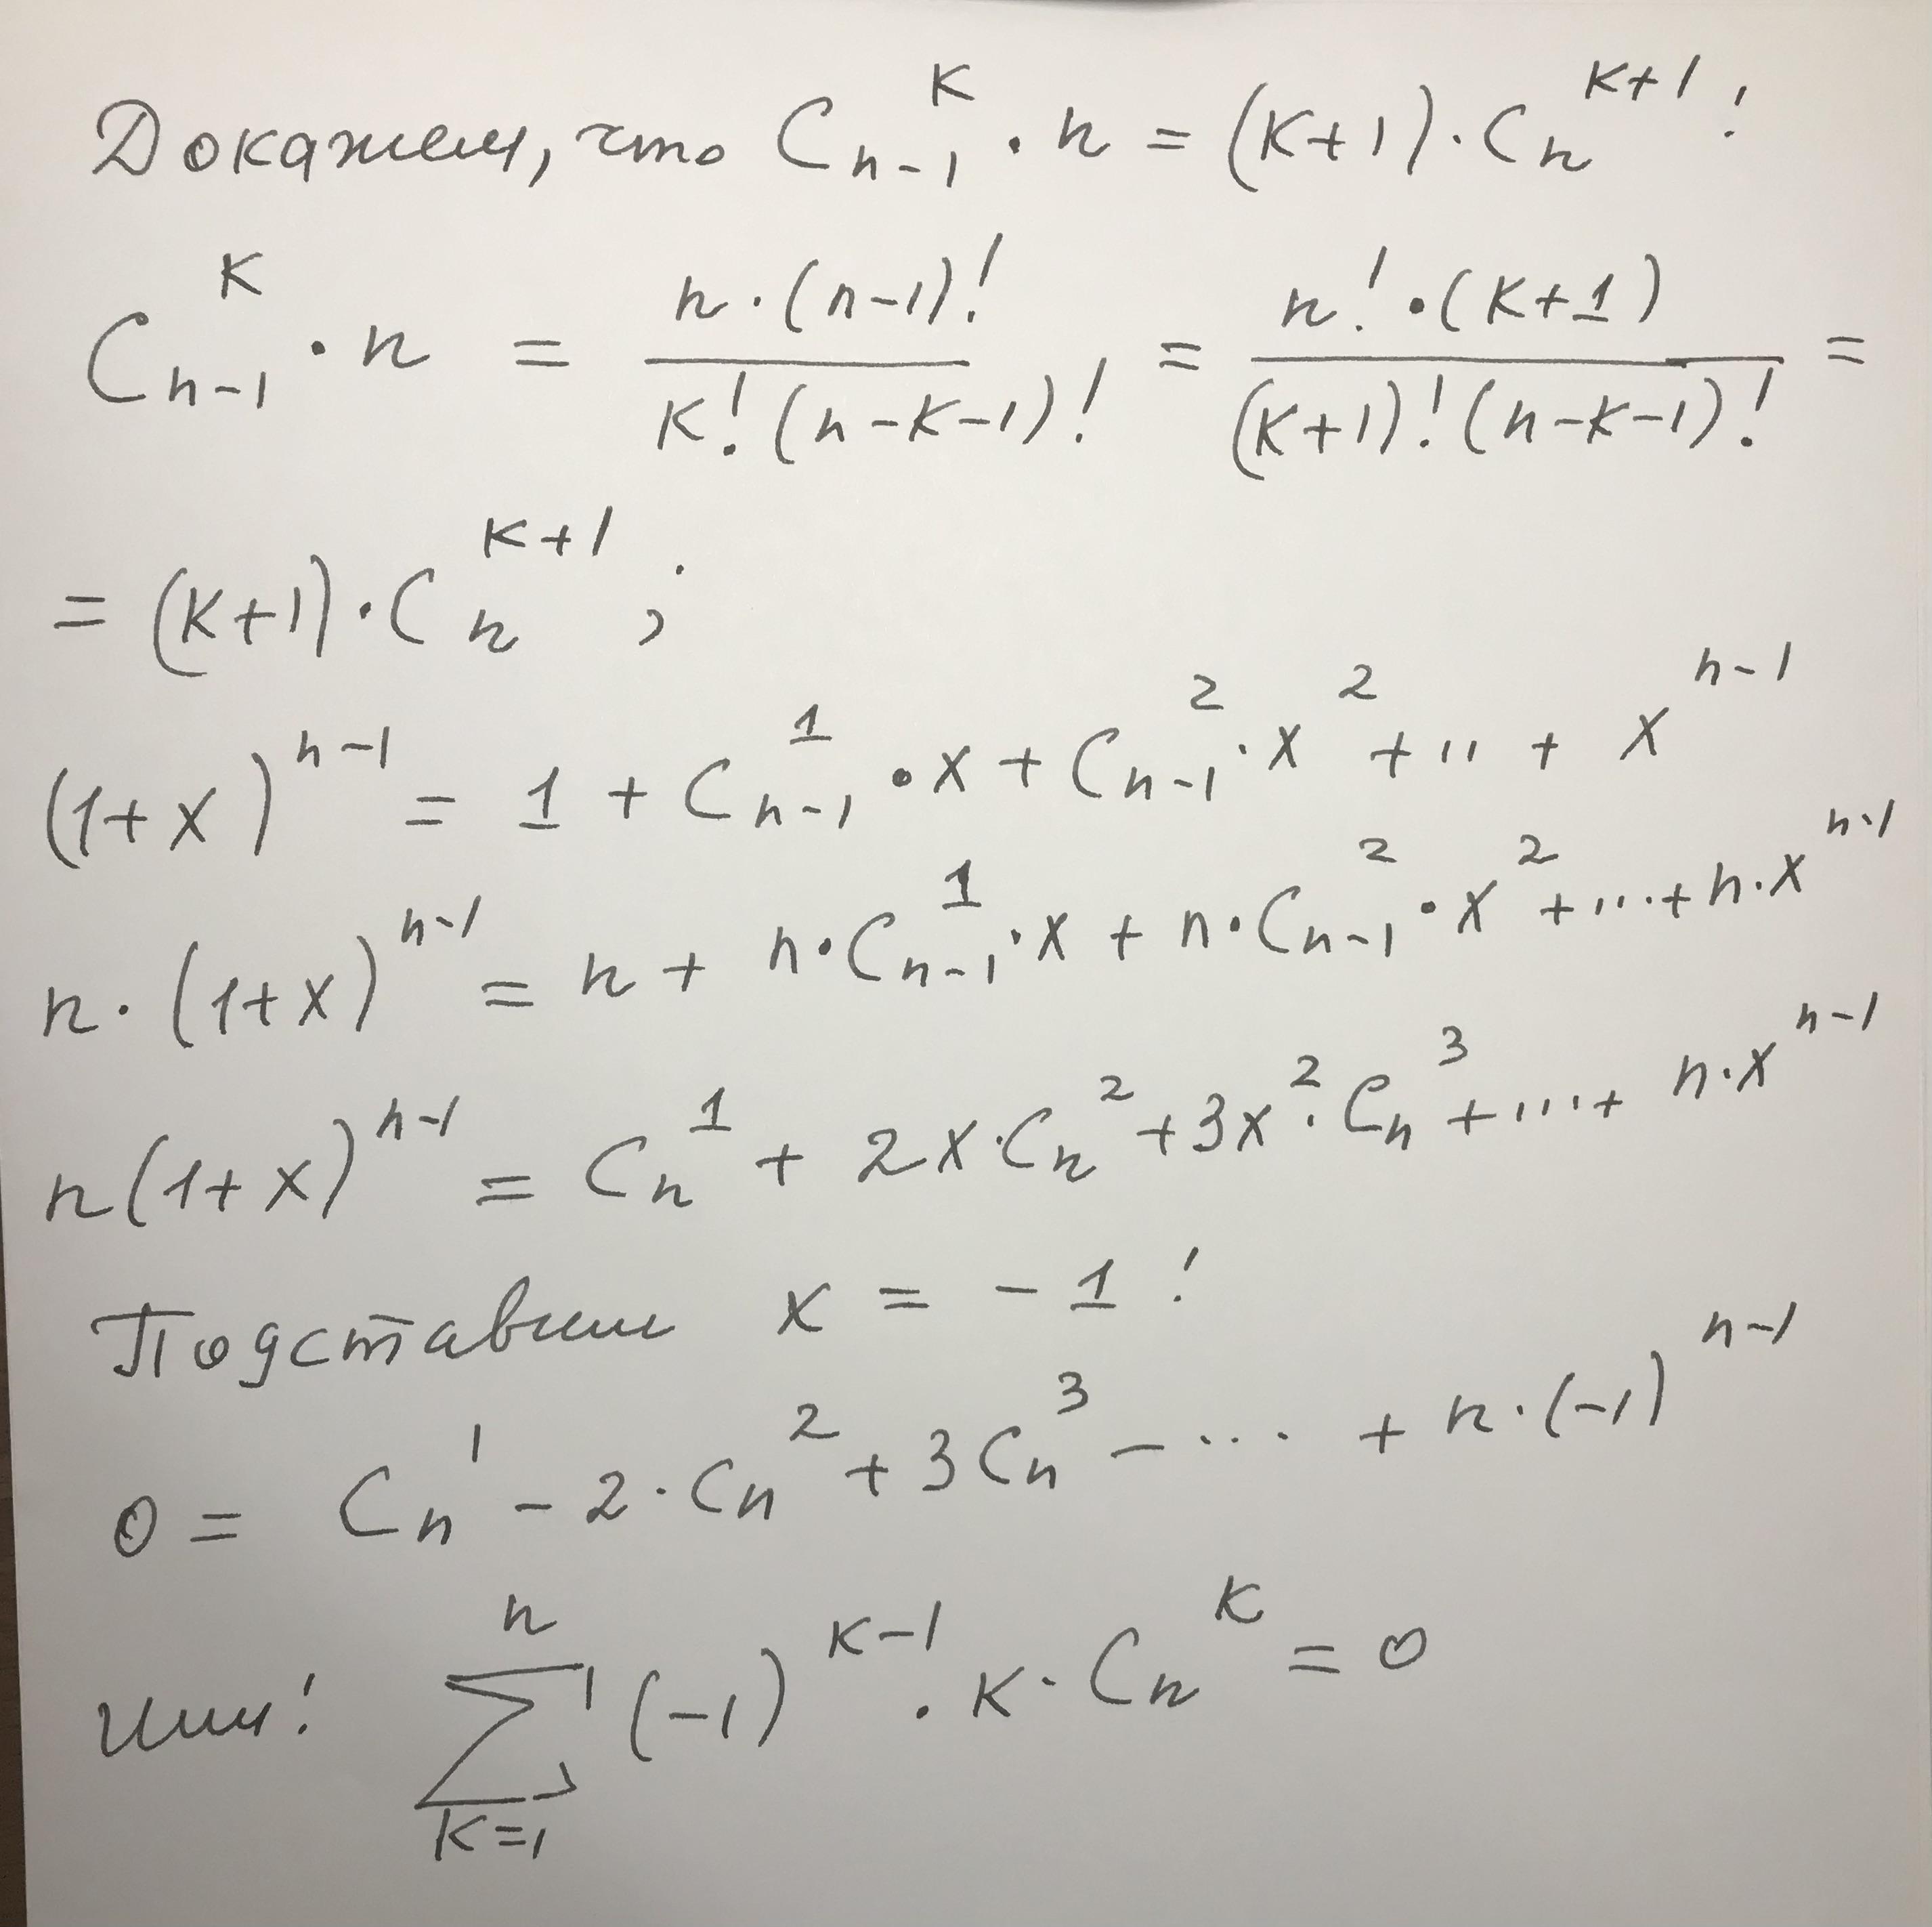 Докажем, что C_{n-1}^{K} · n = (K+1) · C_n^{K+1} !
C_{n-1}^{K} · n = \frac{n · (n-1)!}{K! (n-K-1)!} = \frac{n! · (K+1)}{(K+1)! (n-K-1)!} =
= (K+1) · C_n^{K+1} ;
(1+x)^{n-1} = 1 + C_{n-1}^{1} · x + C_{n-1}^{2} · x^2 + ... + x^{n-1}
n · (1+x)^{n-1} = n + n · C_{n-1}^{1} · x + n · C_{n-1}^{2} · x^2 + ... + n · x^{n-1}
n(1+x)^{n-1} = C_n^{1} + 2x · C_n^{2} + 3x^2 · C_n^{3} + ... + n · x^{n-1}
Подставим x = -1 !
0 = C_n^{1} - 2 · C_n^{2} + 3 C_n^{3} - ... + n · (-1)^{n-1}
или! \sum_{K=1}^{n} (-1)^{K-1} · K · C_n^{K} = 0